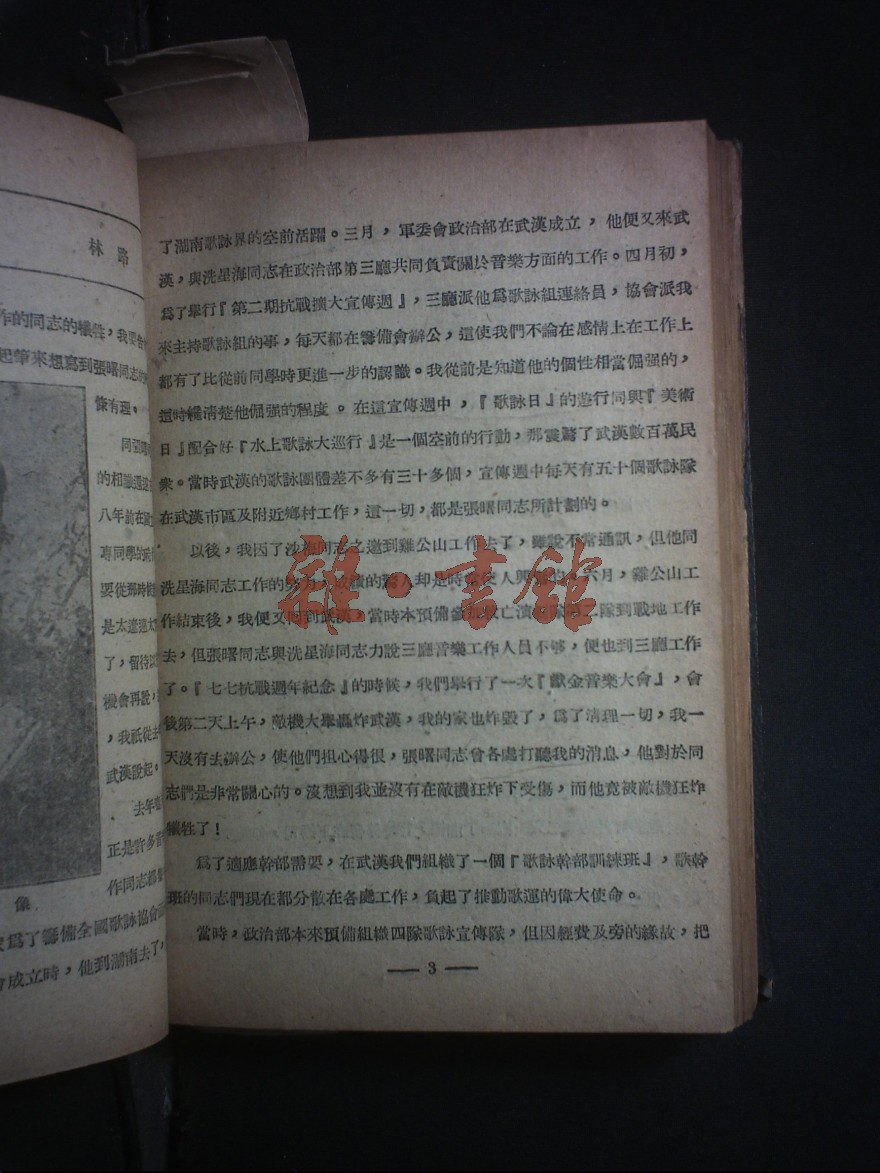 林路
作的同志的犧牲，我要
起筆來想寫到張曙同志的
條有理。
同張
的相識還
八年前在
專同學的
要從那時
是太遼遠
了，留待以
機會再說，
，我祇從去
武漢說起。
去年
正是許多
作同志都
像
爲了籌備全國歌詠協會
會成立時，他到湖南去了，
了湖南歌詠界的空前活躍。三月，軍委會政治部在武漢成立，他便又來武
漢，與洗星海同志在政治部第三廳共同負責關於音樂方面的工作。四月初，
爲了舉行『第二期抗戰擴大宣傳週』，三廳派他爲歌詠組連絡員，協會派我
來主持歌詠組的事，每天都在籌備會辦公，這使我們不論在感情上在工作上
都有了比從前同學時更進一步的認識。我從前是知道他的個性相當倔强的，
這時纔清楚他倔强的程度。在這宣傳週中，『歌詠日』的遊行同與『美術
日』配合好『水上歌詠大巡行』是一個空前的行動，那震驚了武漢數百萬民
衆。當時武漢的歌詠團體差不多有三十多個，宣傳週中每天有五十個歌詠隊
在武漢市區及附近鄉村工作，這一切，都是張曙同志所計劃的。
以後，我因了沙梅同志之邀到雞公山工作去了，雖說不常通訊，但他同
洗星海同志工作的努力，成績的驚人却是時常使人興奮的。六月，雞公山工
作結束後，我便又回到武漢，當時本預備參加救亡演劇隊第二隊到戰地工作
去，但張曙同志與洗星海同志力說三廳音樂工作人員不够，便也到三廳工作
了。『七七抗戰週年紀念』的時候，我們舉行了一次『獻金音樂大會』，會
後第二天上午，敵機大舉轟炸武漢，我的家也炸毀了，爲了清理一切，我一
天沒有去辦公，使他們担心得很，張曙同志曾各處打聽我的消息，他對於同
志們是非常關心的。沒想到我並沒有在敵機狂炸下受傷，而他竟被敵機狂炸
犧牲了！
爲了適應幹部需要，在武漢我們組織了一個『歌詠幹部訓練班』，歌幹
班的同志們現在都分散在各處工作，負起了推動歌運的偉大使命。
當時，政治部本來預備組織四隊歌詠宣傳隊，但因經費及旁的緣故，把
— 3 —
雜·書館